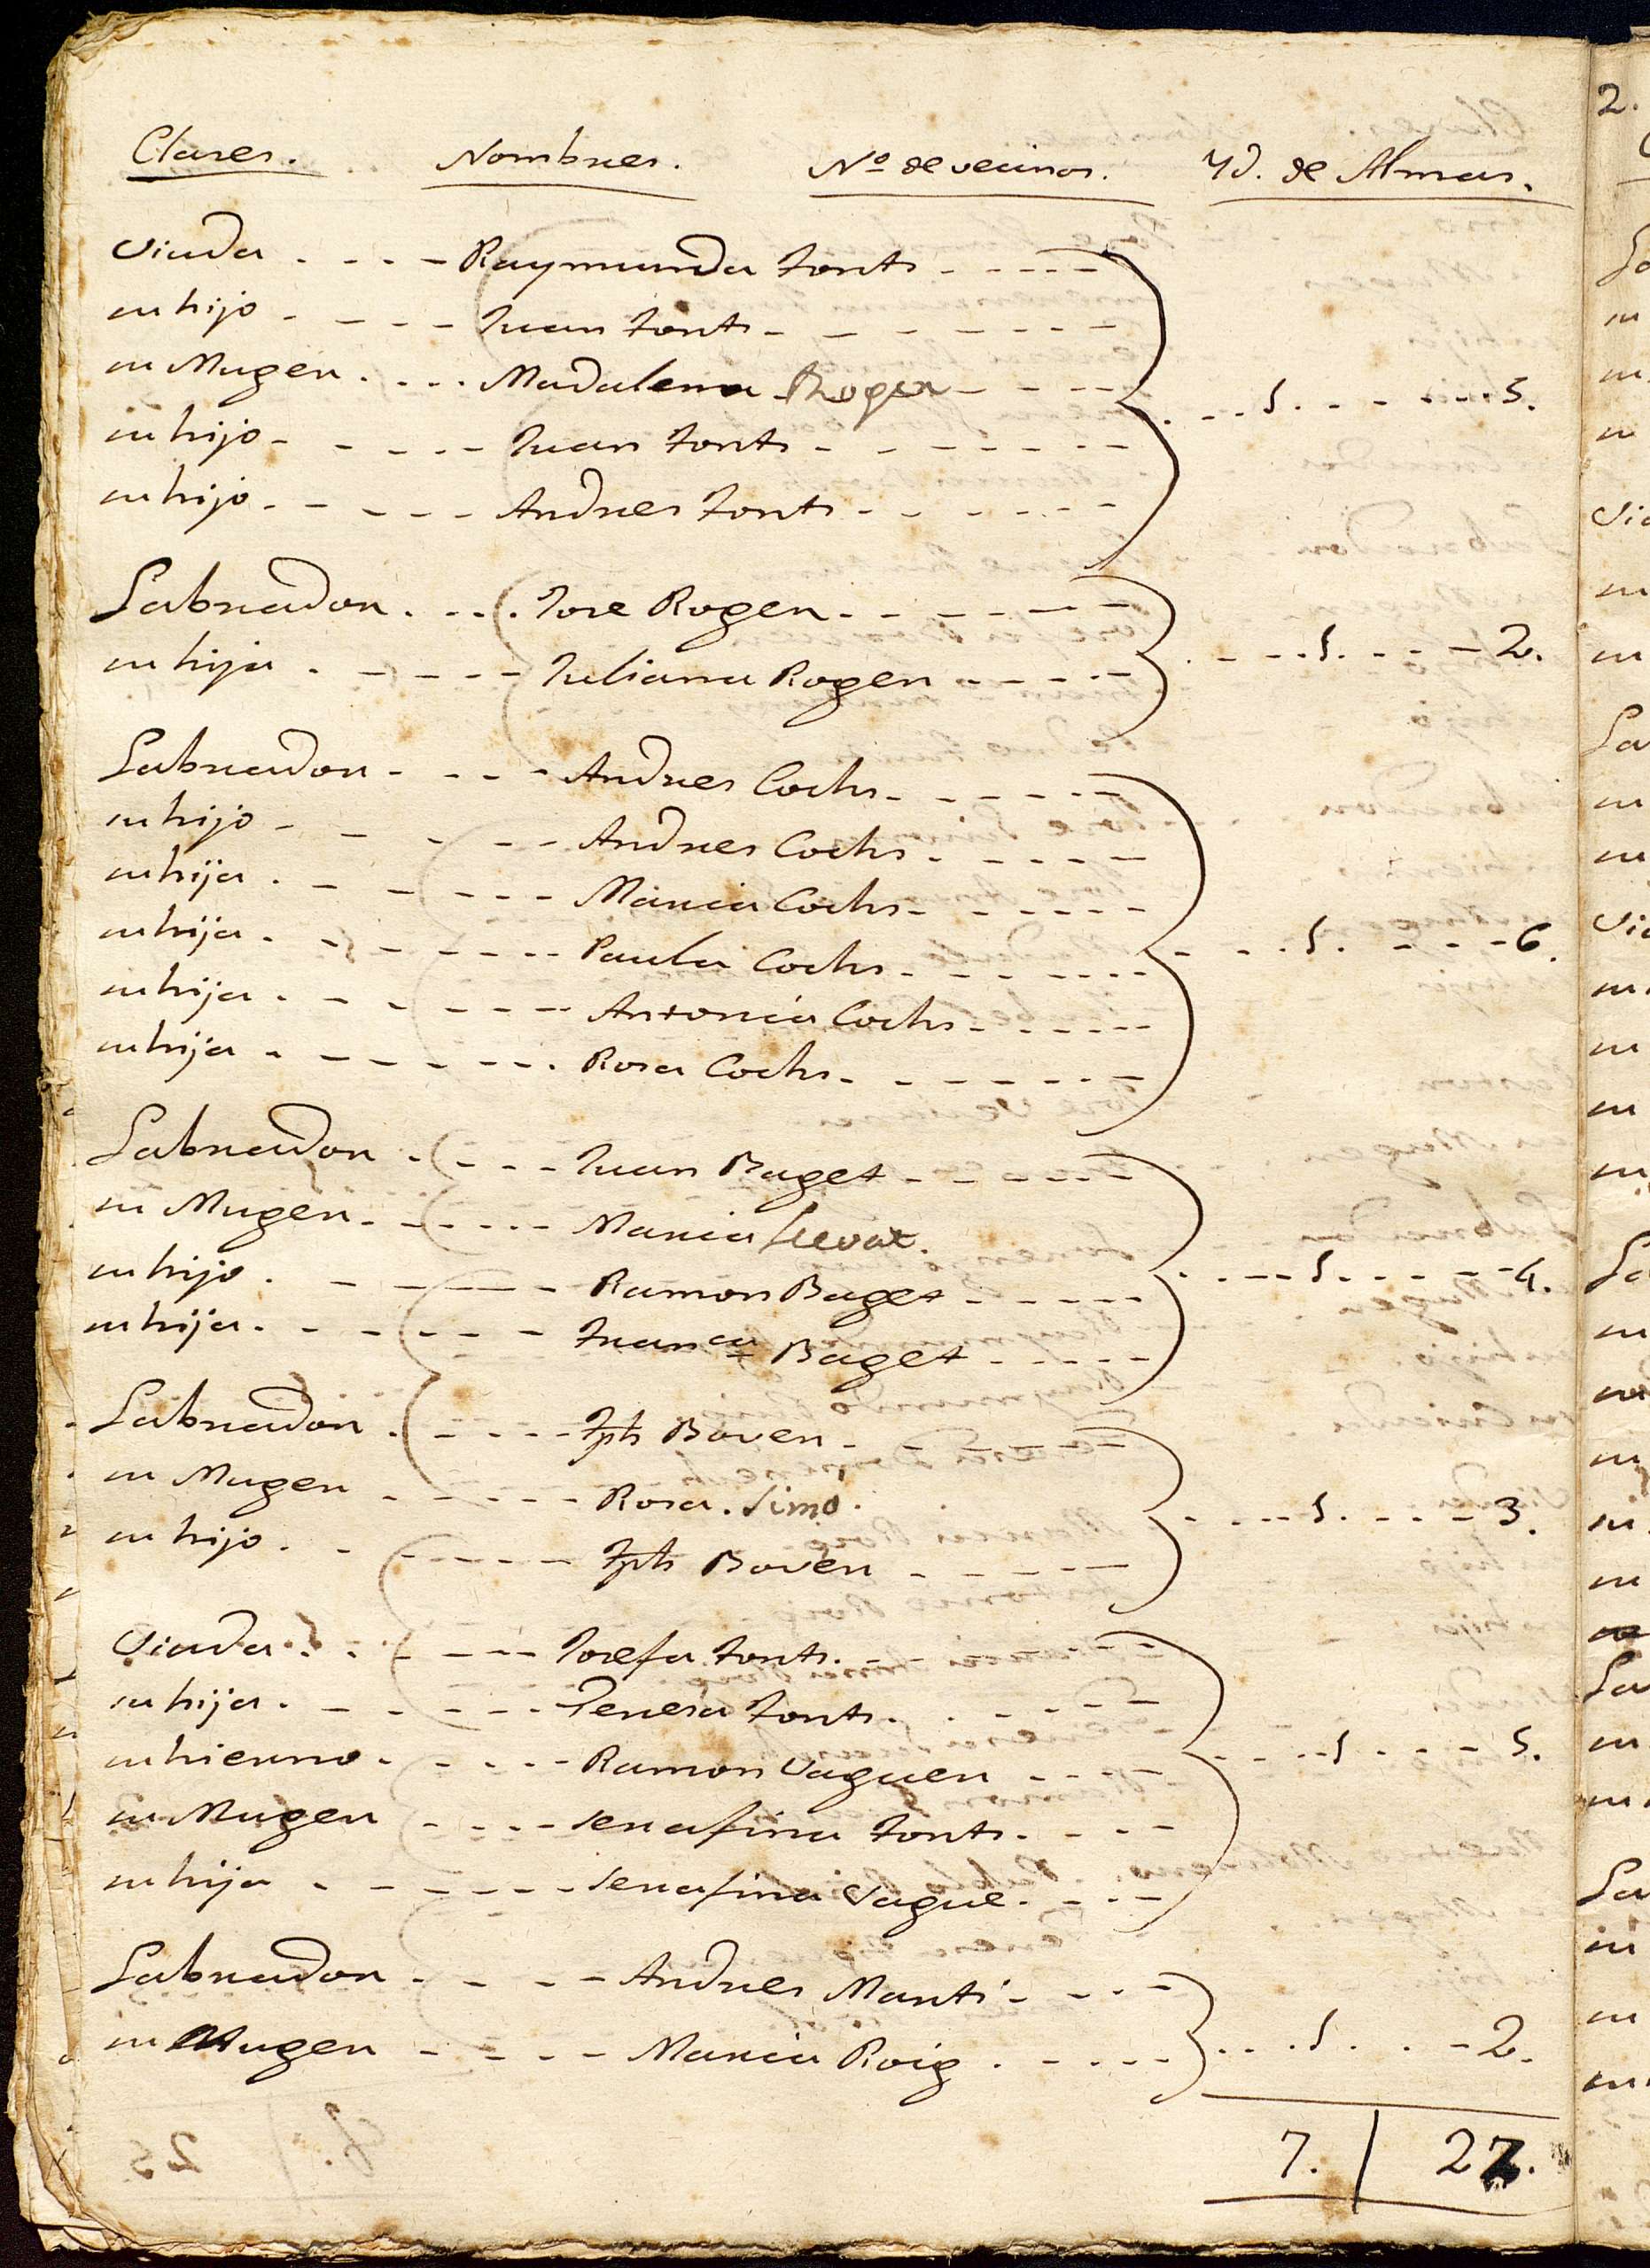 Clases. Nombres. Nº de vecinos. Yd. de Almas.
Viuda . - - - Raymunda Fonts - - - -
su hijo - - - - Juan Fonts - - - - - - -
su Muger . . . . Madalena Roger - - - - . - - - 1 . - - - - - 5.
su hijo - - - - - Juan Fonts - - - - - - -
su hijo . - - - - Andres Fonts - - - - - -
Labrador . - - . Jose Roger - - - - - -
su hija . - - - - Juliana Roger - - - - - . - - - 1 . - - - 2.
Labrador - - - - Andres Cochs - - - - - -
su hijo - - - - - Andres Cochs . - - - -
su hija . - - - - - Maria Cochs - - - - - -
su hija . - - - - - Paula Cochs - - - - - - - - - 1 . - - - 6.
su hija . - - - - - Antonia Cochs - - - - - -
su hija - - - - - - Rosa Cochs - - - - - - -
Labrador . - - - Juan Baget - - - - - -
su Muger - - - - - Maria Llevat.
su hijo . - - - - Ramon Baget - - - - - . - - - 1 . - - - - 4.
su hija . - - - - - Franca Baget - - - - -
Labrador . - - - - Jph Bover - - - - - -
su Muger - - - - - Rosa . Simo . . - - - 1 . - - - 3.
su hijo . - - - - - Jph Bover - - - - -
Viuda . . - - - - Josefa Fonts . - - - - -
su hija . - - - - - Teresa Fonts . - - - -
su hierno . - - - - Ramon Vaguer - - - - - - - 1 . - - - 5.
su Muger - - - - Serafina Fonts . - - -
su hija . - - - - - Serafina Vague . - - -
Labrador . - - - Andres Marti - - - -
su Muger - - - - Maria Roig . - - - - . . . 1 . . - 2.
7. | 27.